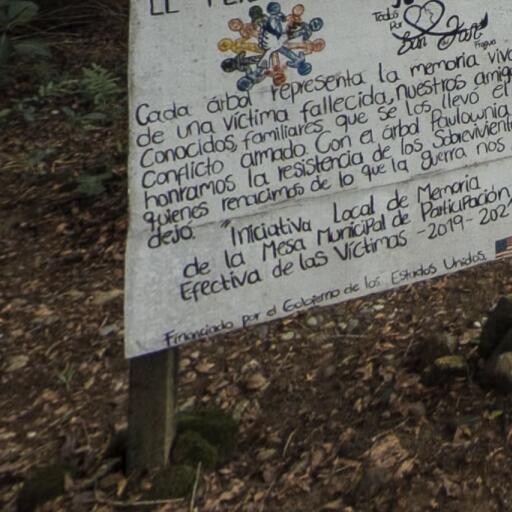 Todos
Por
San Juan
Fragua
Cada árbol representa la memoria viva
de una víctima fallecida, nuestros amigos
Conocidos, familiares que se los llevó el
Conflicto armado. Con el árbol Paulownia
honramos la resistencia de los Sobrevivient
quienes renacimos de lo que la guerra nos
dejó. "Iniciativa Local de Memoria
de la Mesa Municipal de Participación
Efectiva de las Víctimas -2019-202
Financiado por el Gobierno de los Estados Unidos.